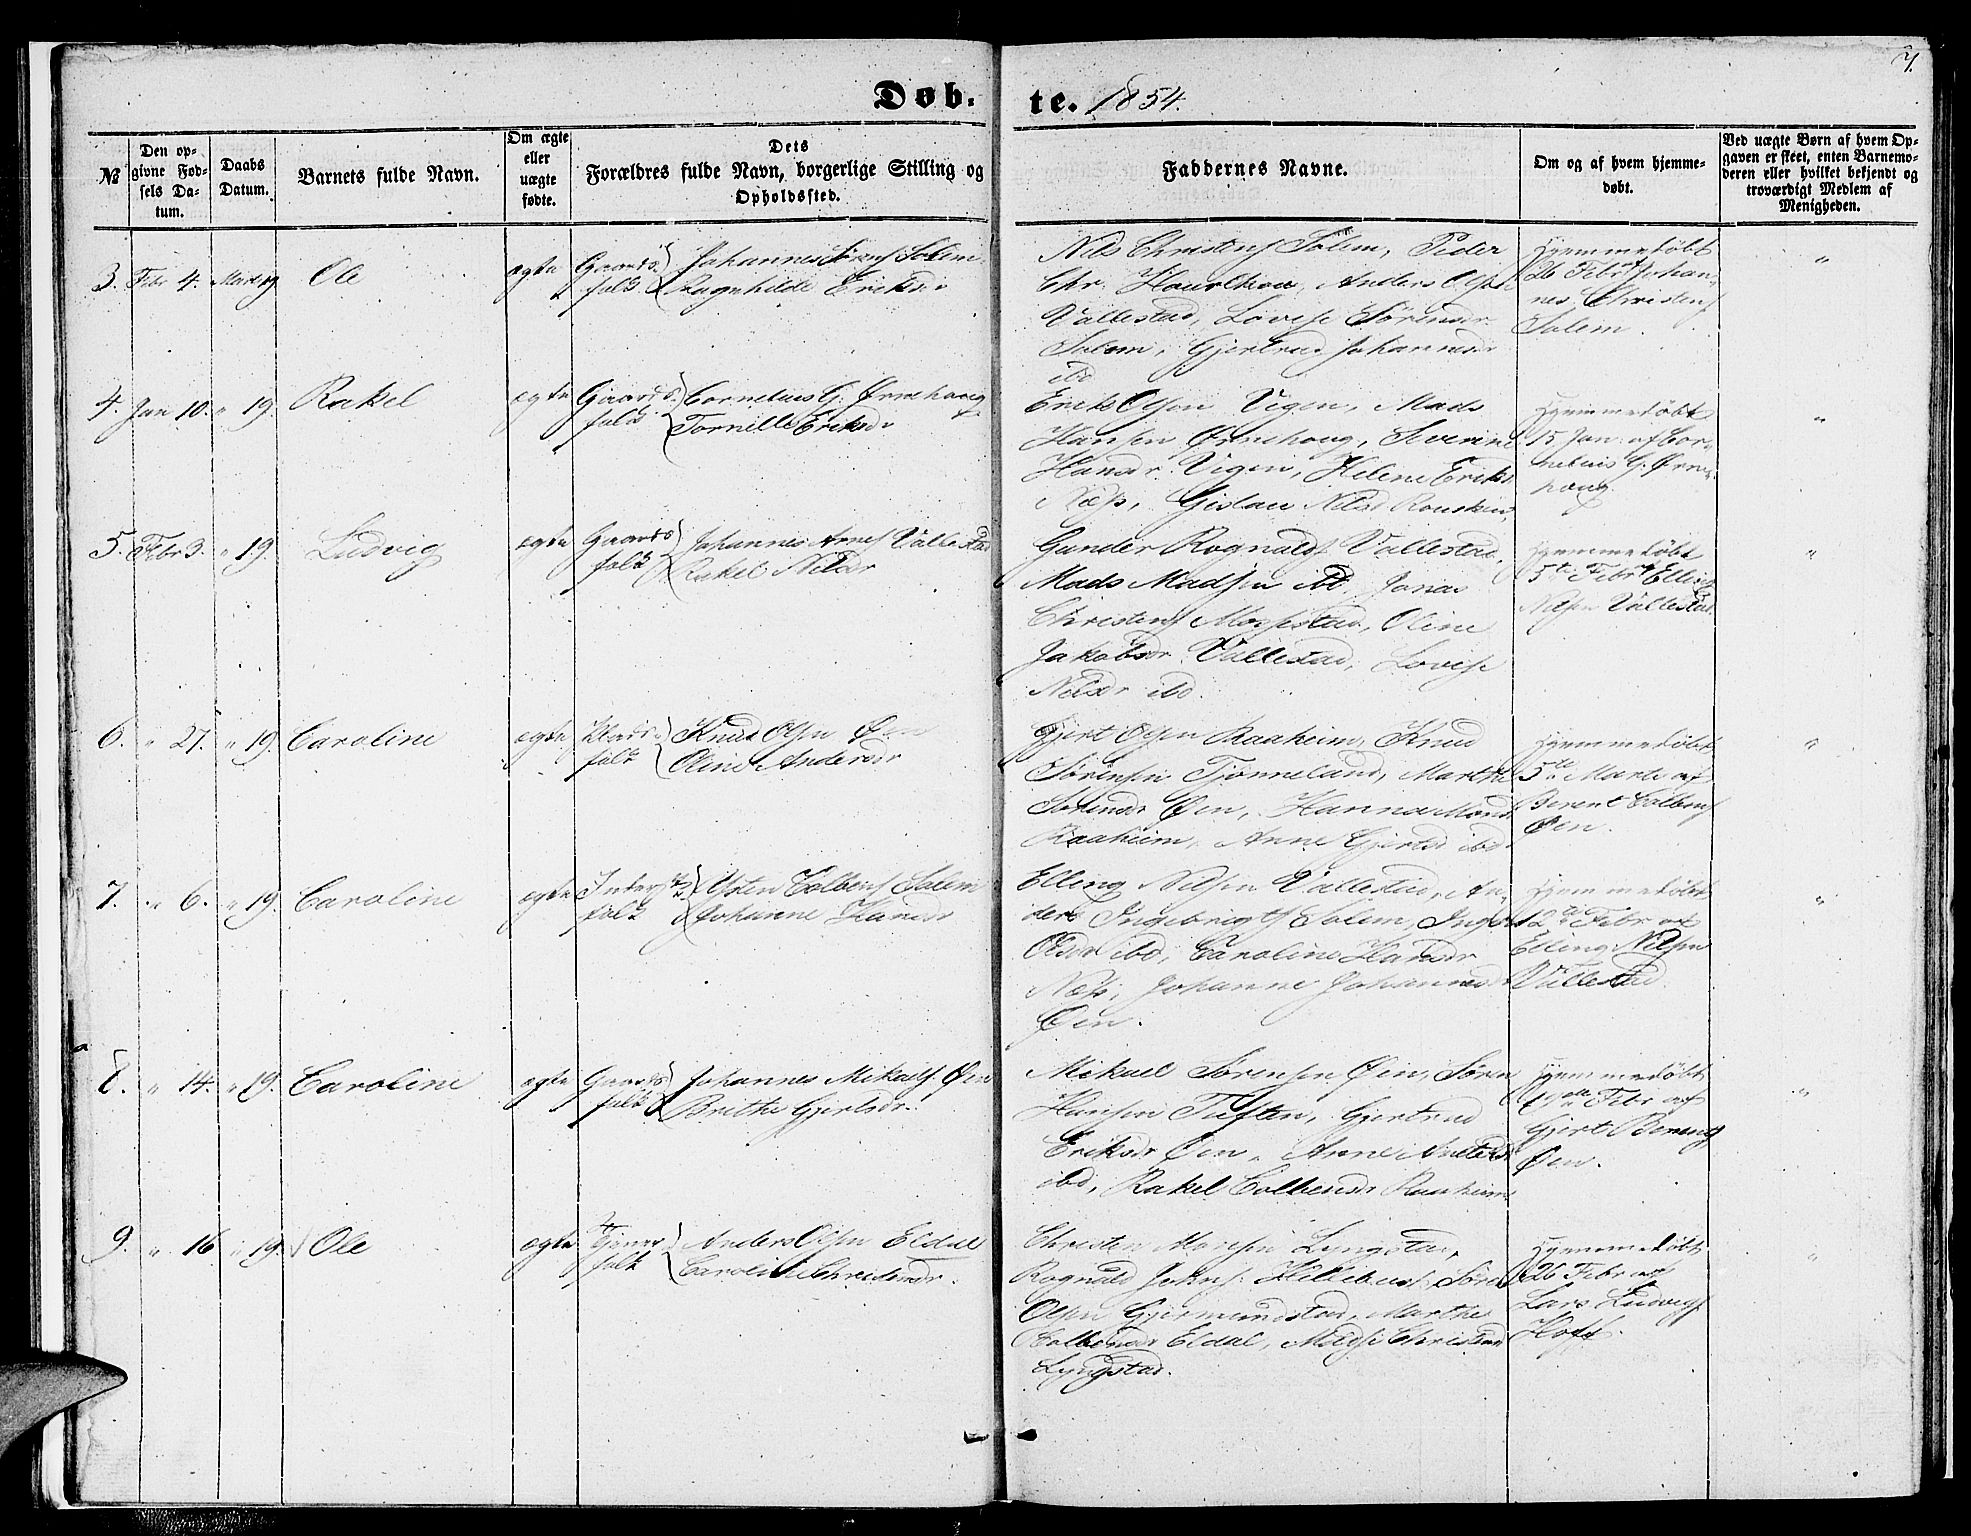 7.
Døb-
te. 1854.
№
Den op-
givne Fød-
sels Da-
tum.
Daabs
Datum.
Barnets fulde Navn.
Om ægte
eller
uægte
fødte.
Dets
Forældres fulde Navn, borgerlige Stilling og
Opholdssted.
Faddernes Navne.
Om og af hvem hjemme-
døbt.
Ved uægte Børn af hvem Op-
gaven er skeet, enten Barnemo-
deren eller hvilket bekjendt og
troværdigt Medlem af
Menigheden.
3. Febr 4. Marts 19 Ole ægte Gaards- Johannes Sørens Solem
folk Ragnhilde Eriksdr
Nils Christens Solem, Peder
Chr. Anders Olsen
Vallestad, Lovise Sørensdr
Solem, Gjertrud Johannesdr
ibd
Hjemmedøbt
26 Febr af Johan-
nes Christens
Solem.
"
4. Jan 10. " 19. Rakel ægte Gaards- Cornelius G. Ørnehoug
folk Tornille Eriksdr
Erik Olsen Vigen, Mads
Hansen Ørnehoug, Severine
Hansdr Vigen, Helene Eriksd
Næss, Nilsd
Hjemmedøbt
15 Jan: af Cor-
nelius G. Ørne-
houg.
"
5. Febr 3. " 19. Ludvig ægte Gaards Johannes Arnes Vallestad
folk Rakel Nilsdr
Gunder Rognalds Vallestad,
Mads Madsen ibd, Jonas
Christens Mosestad, Oline
Jakobsdr Vallestad, Lovise
Nilsdr ibd.
Hjemmedøbt
5te Febr af Elling
Nilsen Vallestad.
"
6. " 27. " 19. Caroline ægte Plads- Knud Olsen Øen
folk Oline Andersdr
Gjert Olsen Raaheim, Knud
Sørensen Tjønneland, Marthe
Sørensdr Øen, Hanna Monsd
Raaheim, Anne Gjertsd ibd.
Hjemmedøbt
5te Marts af
Berent Colbens
Øen.
"
7. " 6. " 19. Caroline ægte Inderst Østen Colbens Solem
folk Johanne Hansdr
Elling Nilsen Vallestad, An-
ders Ingebrigts Solem, Inger
Olsdr ibd, Caroline Hansdr
Næss, Johanne Johannesdr
Øen.
Hjemmedøbt
12te Febr af
Elling Nilsen
Vallestad.
"
8. " 14. " 19. Caroline ægte Gaards Johannes Mikaels Øen
folk Brithe Gjertsdr.
Mikael Sørensen Øen, Søren
Hansen Tuften, Gjertrud
Eriksdr Øen, Anne
ibd, Rakel Colbensdr Raaheim
Hjemmedøbt
19de Febr af
Gjert Berents
Øen.
"
9. " 16 " 19. Ole ægte Tjener Anders Olsen Eldal
folk Caroline Christensdr.
Christen Monsen Lyngstad,
Rognald Johns: Hillebust, Søren
Olsen Gjermundstad, Marthe
Colbensdr Eldal, Christensd
Lyngstad.
Hjemmedøbt
26 Febr af
Lars Ludvigs
Hoff.
"